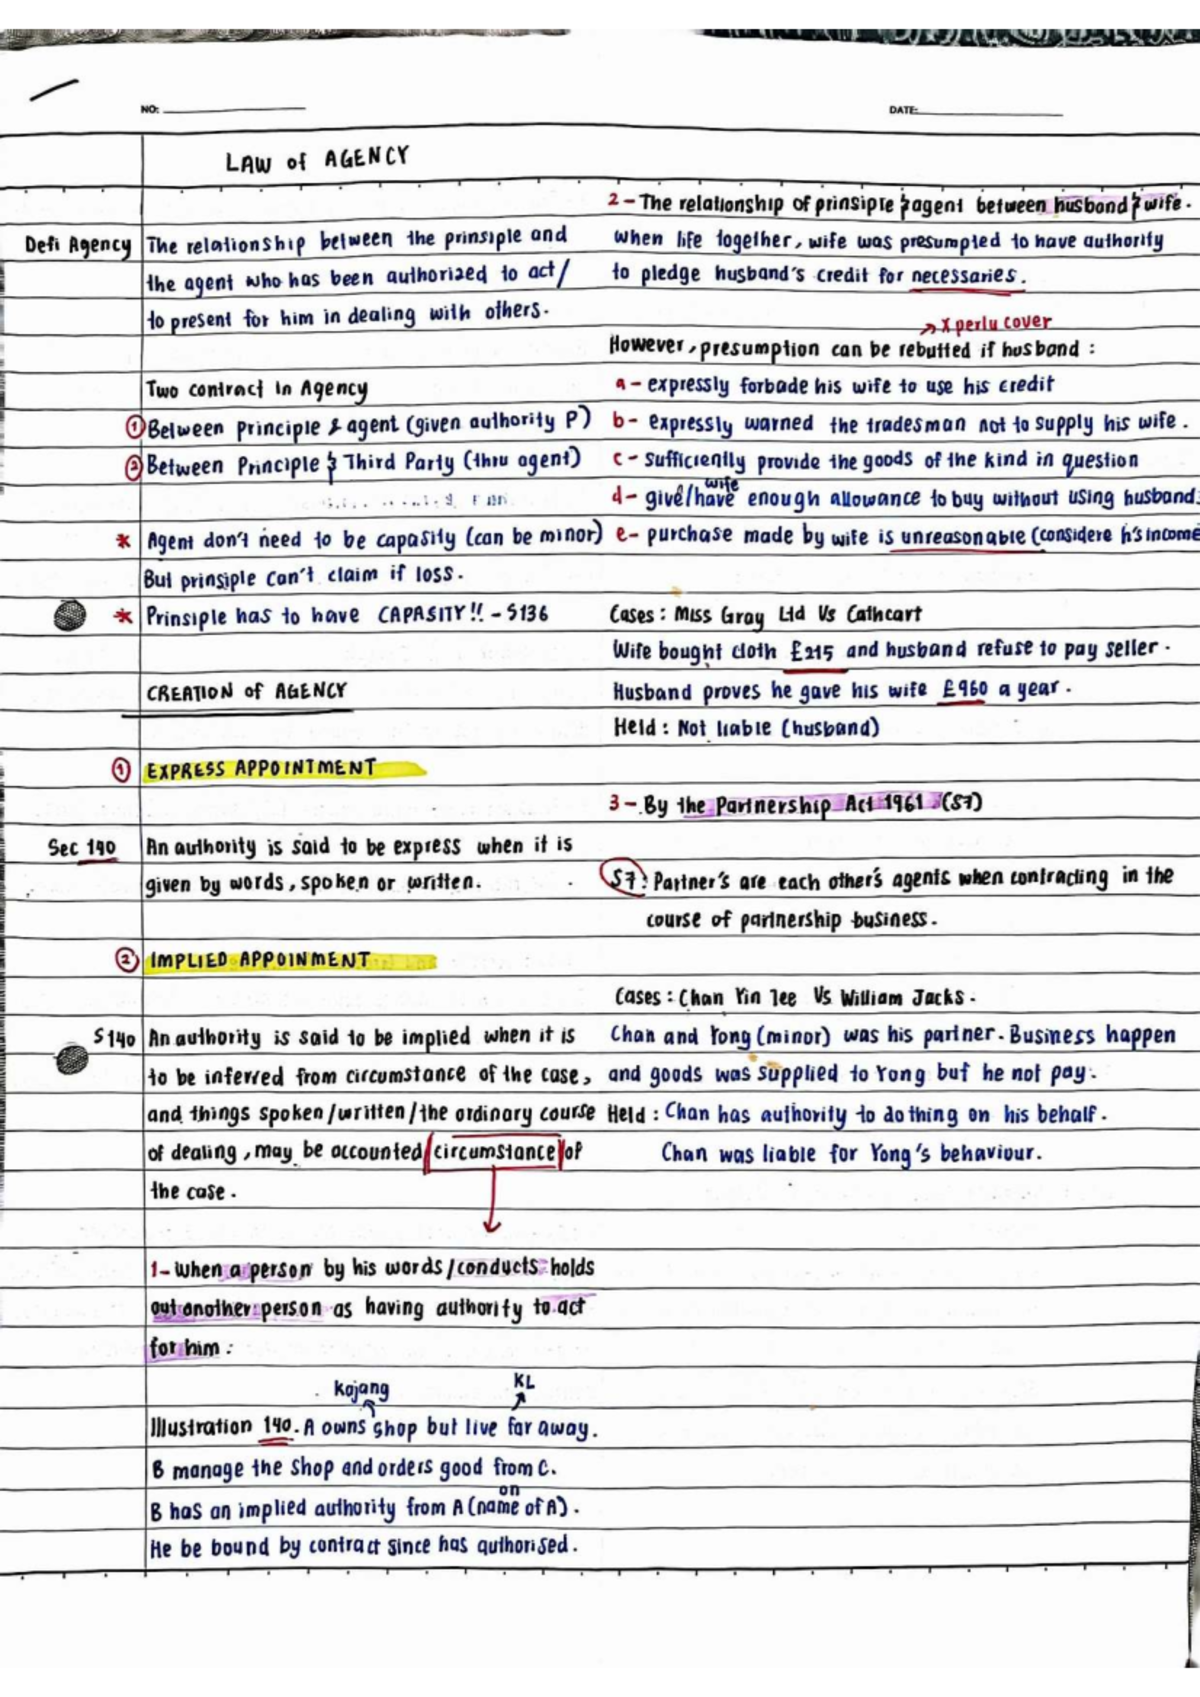 NO:
DATE:
LAW of AGENCY
Defi Agency
The relationship between the prinsiple and
the agent who has been authorized to act/
to present for him in dealing with others.
Two contract in Agency
① Between Principle & agent (given authority P)
② Between Principle & Third Party (thru agent)
* Agent don't need to be capasity (can be minor)
But prinsiple can't claim if loss.
* Prinsiple has to have CAPASITY!! - S136
CREATION of AGENCY
① EXPRESS APPOINTMENT
Sec 140
An authority is said to be express when it is
given by words, spoken or written.
② IMPLIED APPOINMENT
S140
An authority is said to be implied when it is
to be inferred from circumstance of the case,
and things spoken/written/the ordinary course
of dealing, may be accounted circumstance of
the case.
1- When a person by his words/conducts holds
out another person as having authority to act
for him :
Kajang
KL
Illustration 140. A owns shop but live far away.
B manage the shop and orders good from C.
on
B has an implied authority from A (name of A).
He be bound by contract since has authorised.
2- The relationship of prinsiple & agent between husband & wife.
When life together, wife was presumpted to have authority
to pledge husband's credit for necessaries.
→ X perlu cover
However, presumption can be rebutted if husband :
a- expressly forbade his wife to use his credit
b- expressly warned the tradesman not to supply his wife.
c- Sufficiently provide the goods of the kind in question
wife
d- give/have enough allowance to buy without using husband
e- purchase made by wife is unreasonable (considere h's income
Cases : Miss Gray Ltd Vs Cathcart
Wife bought cloth £215 and husband refuse to pay seller.
Husband proves he gave his wife £960 a year.
Held : Not liable (husband)
3- By the Partnership Act 1961 (S7)
S7: Partner's are each other's agents when contracting in the
course of partnership business.
Cases : Chan Yin Tee Vs William Jacks.
Chan and Yong (minor) was his partner. Business happen
and goods was supplied to Yong but he not pay.
Held : Chan has authority to do thing on his behalf.
Chan was liable for Yong's behaviour.